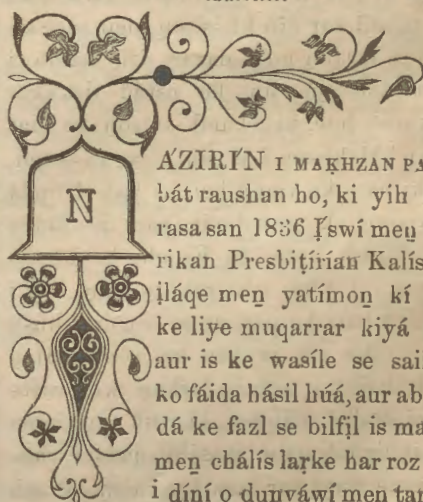 NÁZIRÍN I MAḲHZAN PA
bát raushan ho, ki yih
rasa san 1836 I̤swí men̲
rikan Presbiṭírían Kalís
i̤láqe men̲ yatímon̲ kí
ke liye muqarrar kiyá
aur is ke wasíle se sai
ko fáida hásil húá, aur ab
dá ke fazl se bilfi̤l is ma
men̲ chálís laṛke har roz
i díní o dunyáwí men̲ tar